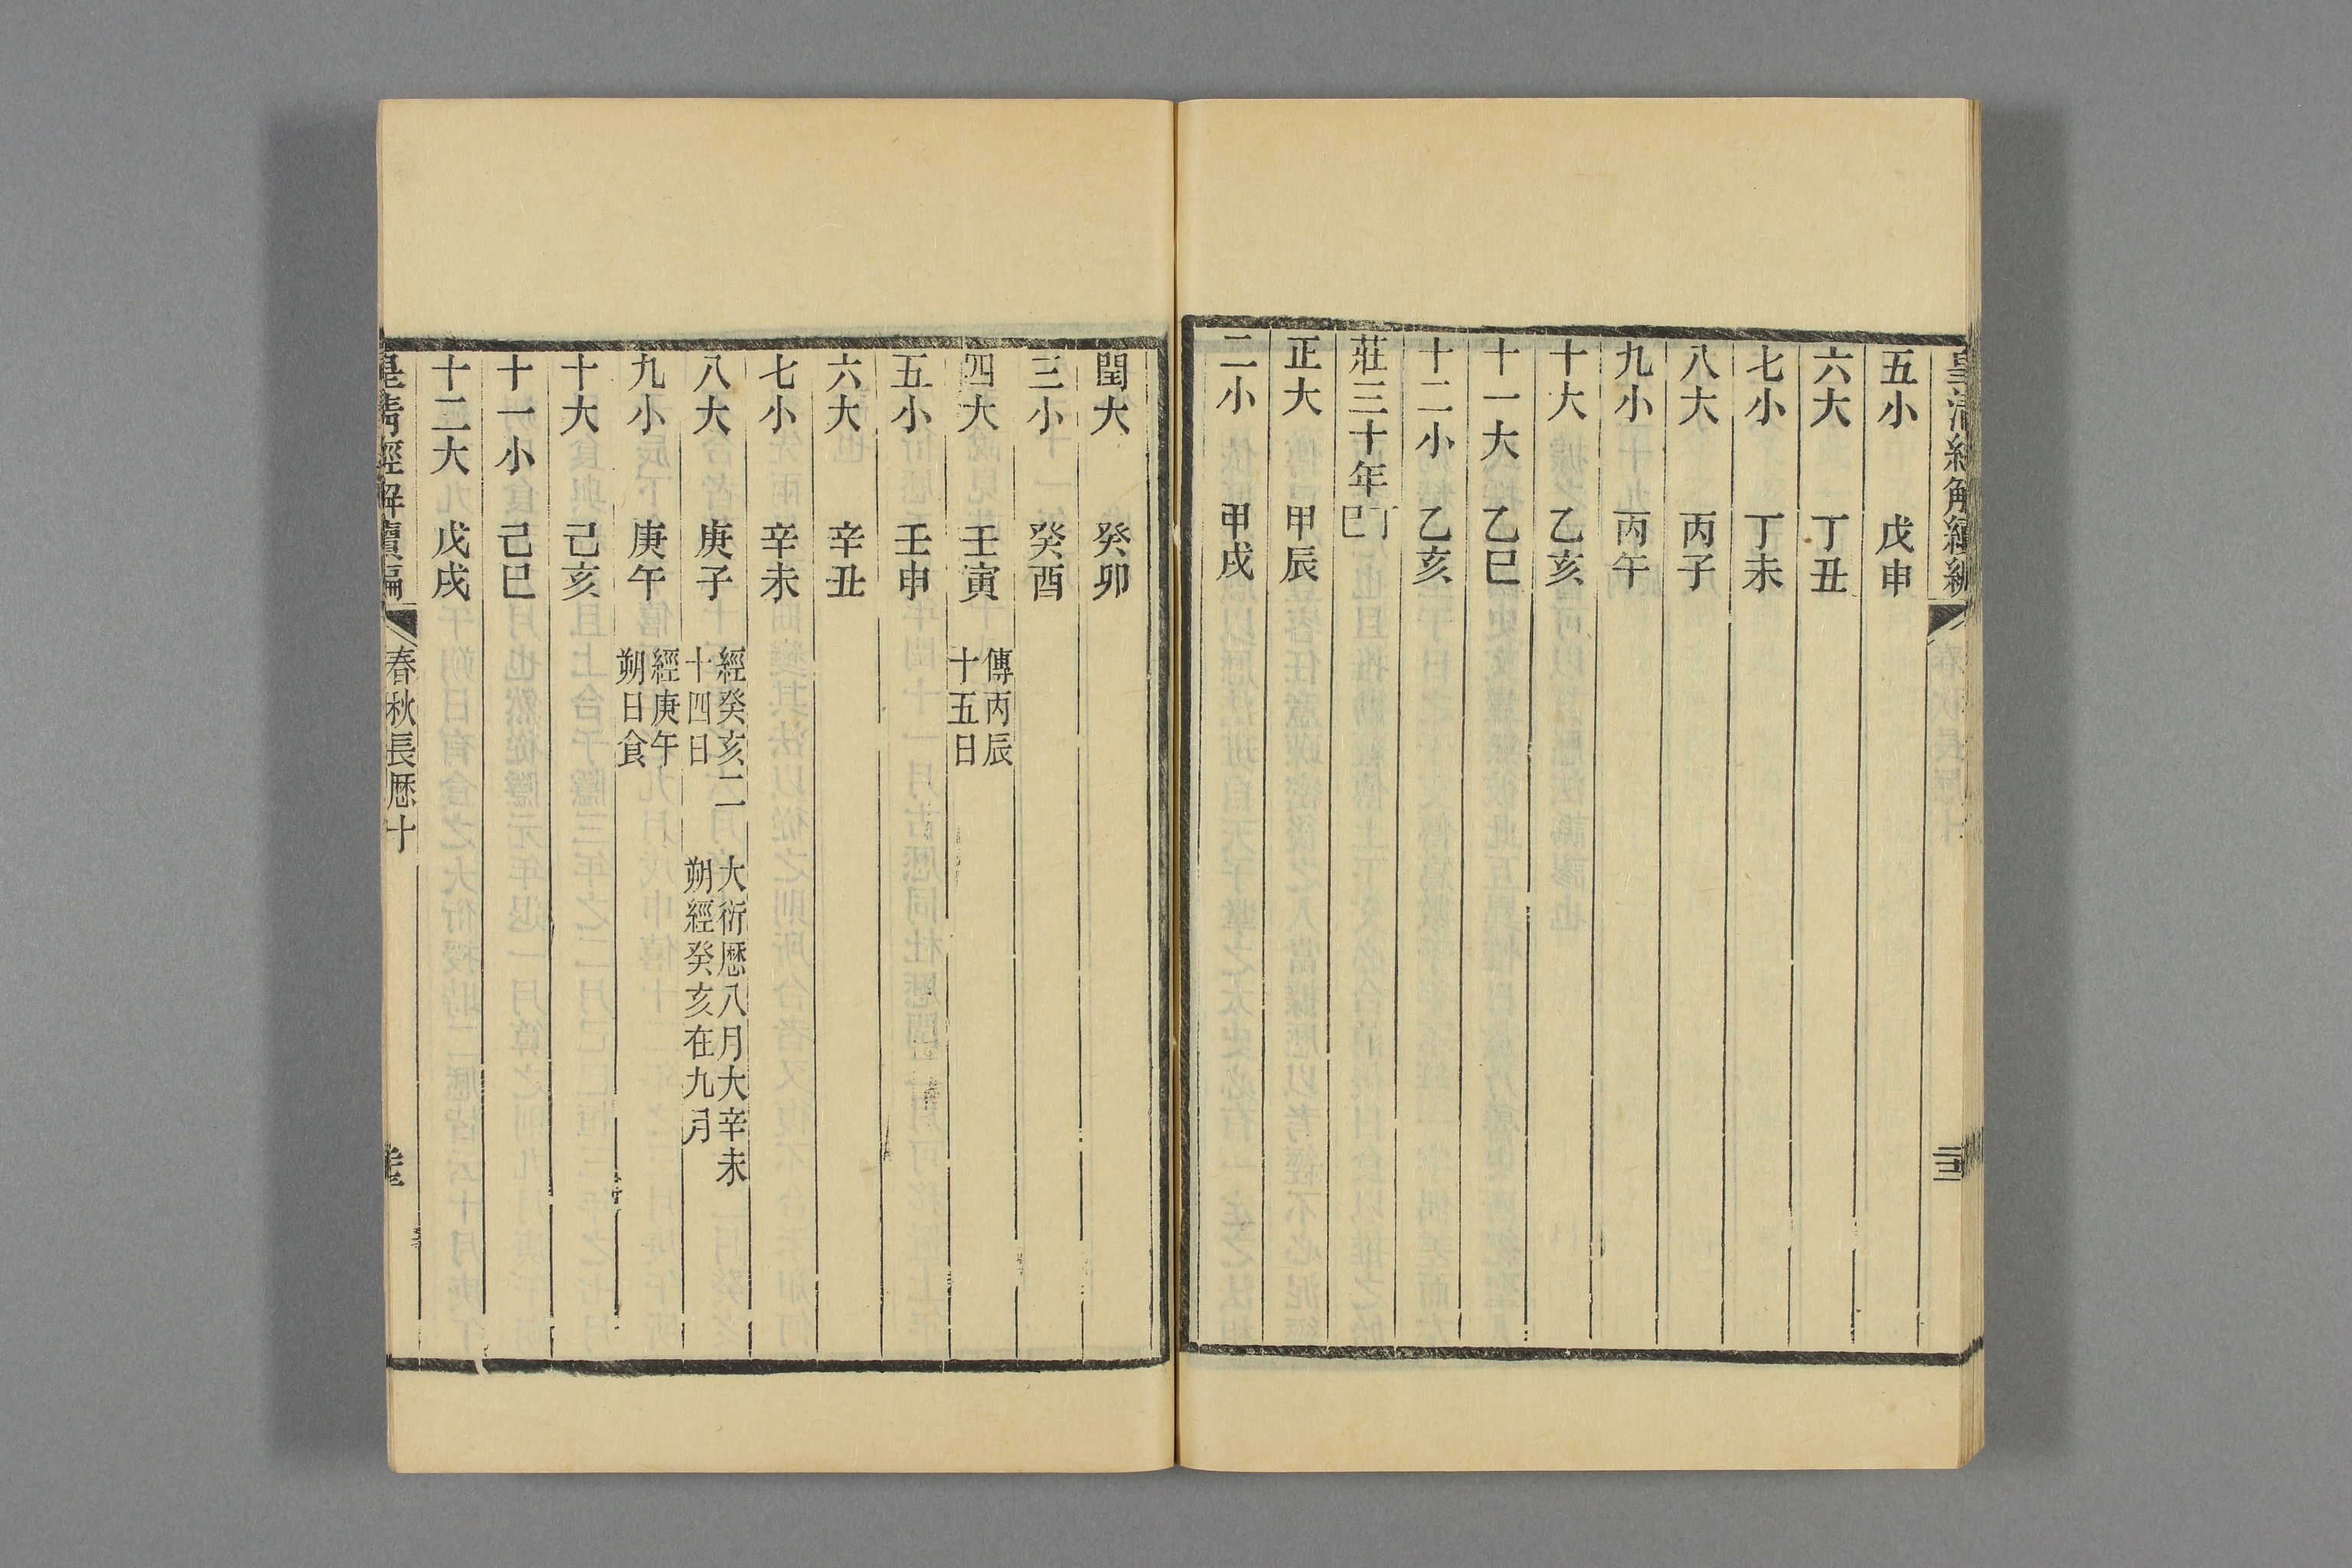 皇清經解續編
五小 戊申
六大 丁丑
七小 丁未
八大 丙子
九小 丙午
十大 乙亥
十一大 乙巳
十二小 乙亥
莊三十年丁巳
正大 甲辰
二小 甲戌
閏大 癸卯
三小 癸酉
四大 壬寅 傳丙辰
十五日
五小 壬申
六大 辛丑
七小 辛未
八大 庚子 經癸亥二 大衍厯八月大辛未
十四日 朔經癸亥在九月
九小 庚午 經庚午
朔日食
十大 己亥
十一小 己巳
十二大 戊戌
皇清經解續編 春秋長厯十